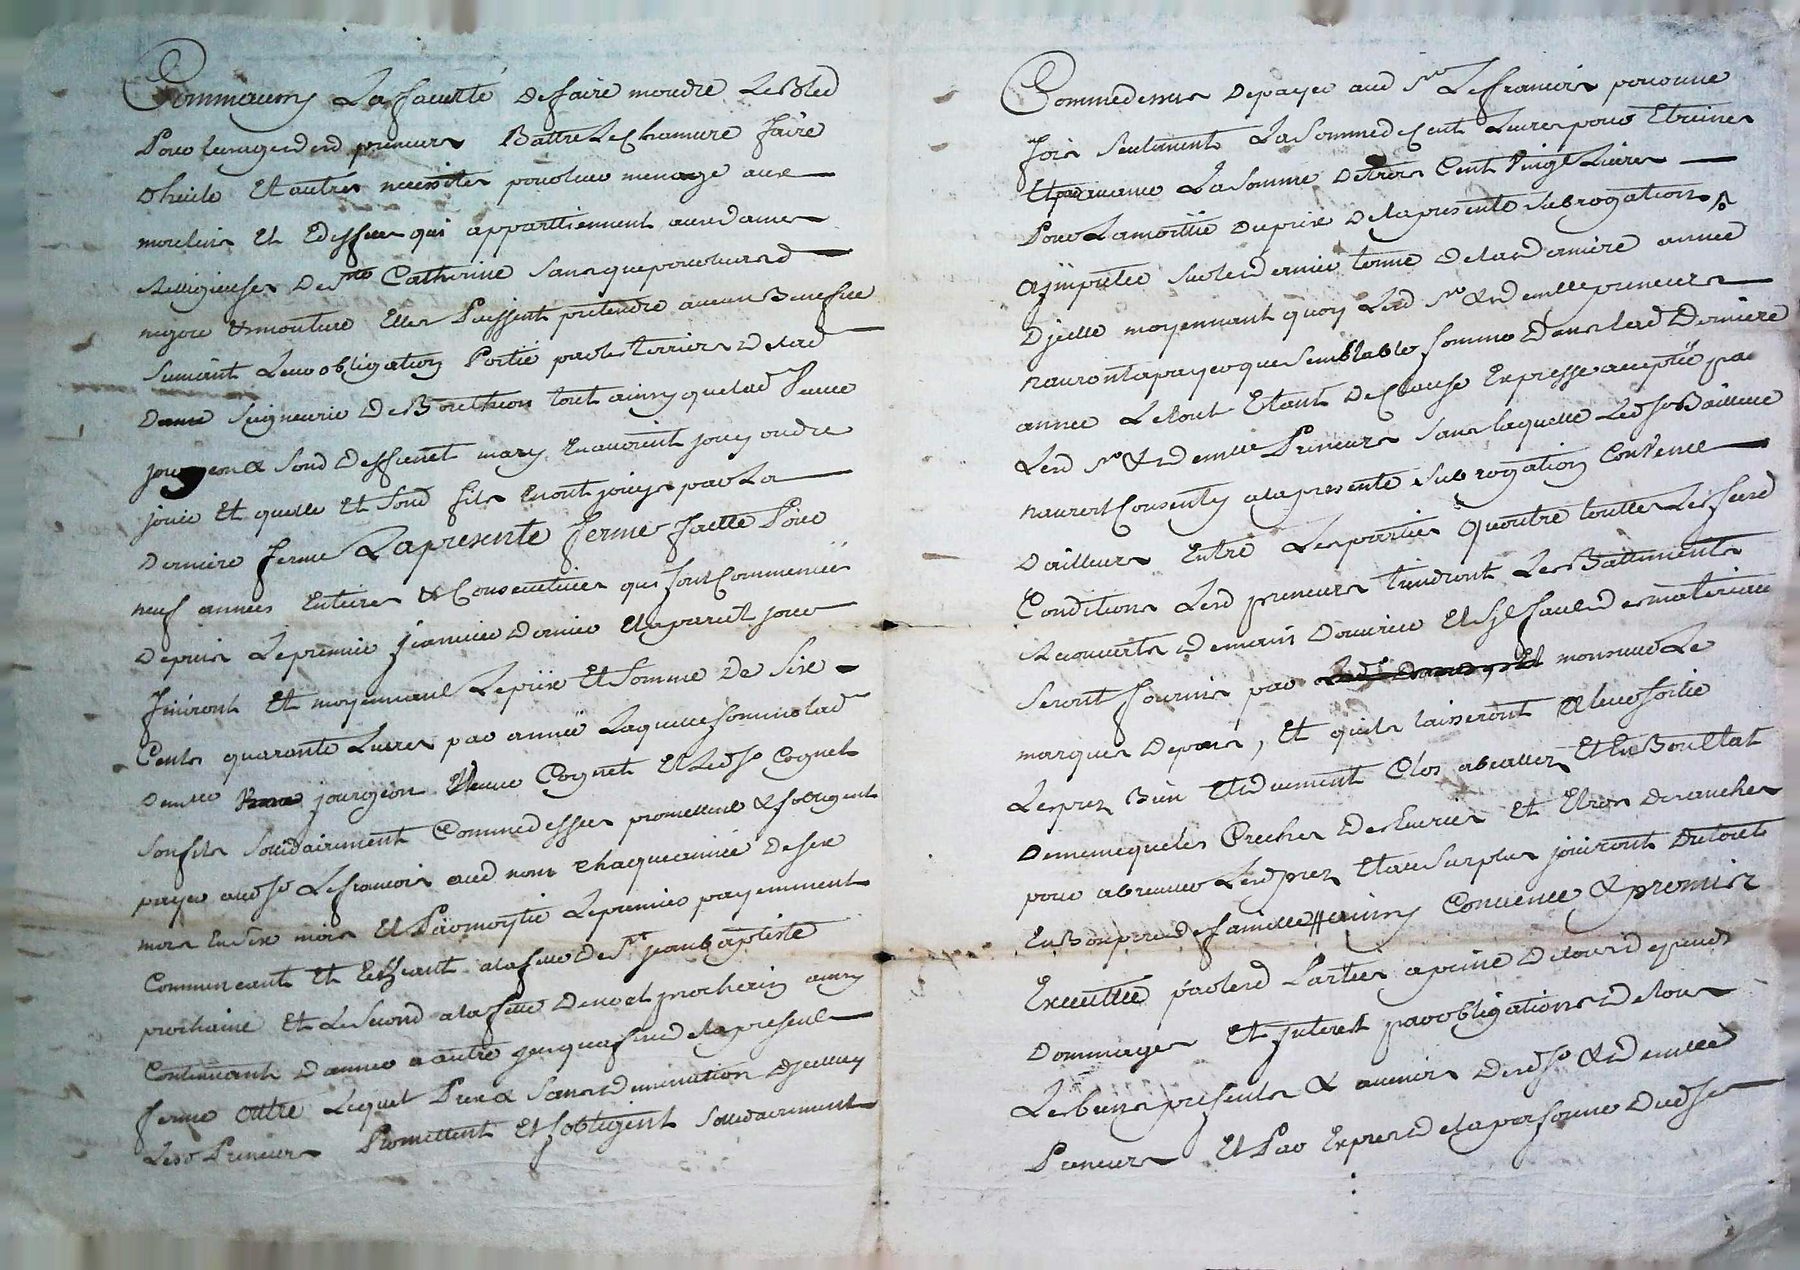 Commaussy La faculté de faire moudre Le Bled
Pour lusage desd preneurs Battre Le Chamure faire
dhuile Et autres necessites pour leur menage aux
moulins Et Edeffices qui appartiennent aux dames
Religieuses de Ste Catherine Sans que pour leurd
negoce & mouture Elles Puissent pretendre aucun Beneffice
Suivant Leur obligation Portée par les terriers de lad
dame Seigneurie de Bouthéon tout ainsy que lad Veuve
jourgeon & Sond deffunt mary En auroient jouy ou dû
jouir Et quelle Et Sond fils En ont jouys par La
derniere ferme La presente ferme faitte Pour
neuf années Entieres & Consecutives qui sont Commencées
depuis Le premier janvier dernier Et a pareil jour
finiront Et moyennant Le prix Et Somme de Six
Cents quarante Livres par année Laquelle somme lad
demlle jourgeon Veuve Cognet Et Led Sr Cognet
Son fils Solidairement Comme dessus promettent & sobligent
payer aud Sr Lefrancois aud nom chaque année de six
mois En Six mois Et Par moytié Le premier payemment
Commencant Et Echeant a la feste de St jean baptiste
prochaine Et Le Second a la feste de noel prochain ainsy
Continuant dannee a autre jusqua fin de la presente
ferme outre Lequel Prix & Sans diminution dJcelluy
Lesd Preneurs Promettent Et sobligent Solidairement
Comme dessus de payer aud Sr Lefrancois pour une
fois Seulement La Somme de Cent Livres pour Etreines
Et par avance La Somme de trois Cent Vingt Livres
Pour La moitié du prix de la presente Subrogation
a jmputer Sur le dernier terme de la derniere année
djcelle moyennant quoy Lesd Sr & demlle preneurs
nauront a payer que Semblable somme dans lad derniere
année Le tout Etant de Clause Expresse acceptée par
Lesd Sr & demlle Preneurs Sans laquelle Led Sr Bailleur
nauroit Consenty a la presente Subrogation Convenu
dailleurs Entre Les parties quoutre touttes Les susd
Conditions Lesd preneurs tiendront Les Battiments
Recouverts de main douvrier Et Sil faut des materiaux
Seront fournis par monsieur Le
marquis depons, Et quils laisseront a leur sortie
Les prez Bien Et duement Clos
de meme que les Creches des Ecuries Et
pour abreuver Lesd prez Et au Surplus jouiront du tout
En Bon pere de famille ainsy Convenu & promis
Executter par lesd Parties a peine de tous depends
dommages Et Jnterest par obligations de tous
Les biens presents & avenir desd Sr & demlle
Preneurs Et Par Exprest de la personne dud Sr